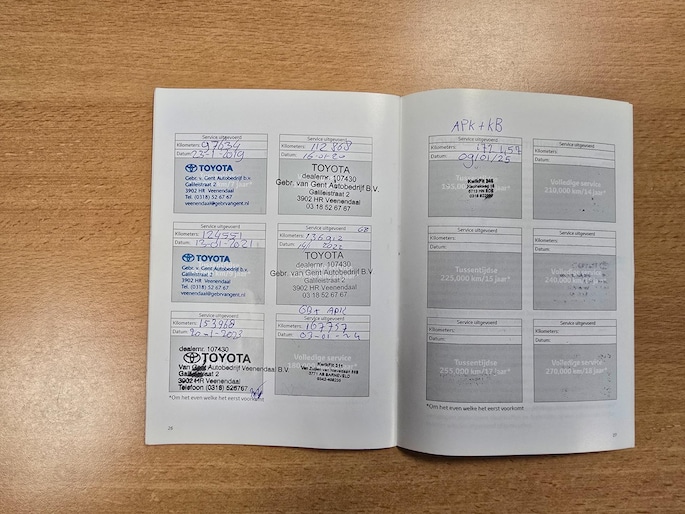 Service uitgevoerd
Kilometers: 97634
Datum: 23-1-2019
TOYOTA
Gebr. v. Gent Autobedrijf B.V.
Galileistraat 2
3902 HR Veenendaal
Tel. (0318) 52 67 67
veenendaal@gebrvangent.nl
Service uitgevoerd
Kilometers: 112868
Datum: 16-01-20
TOYOTA
dealernr. 107430
Gebr. van Gent Autobedrijf B.V.
Galileistraat 2
3902 HR Veenendaal
03 18 52 67 67
Service uitgevoerd
Kilometers: 124551
Datum: 13-01-2021
TOYOTA
Gebr. v. Gent Autobedrijf B.V.
Galileistraat 2
3902 HR Veenendaal
Tel. (0318) 52 67 67
veenendaal@gebrvangent.nl
Service uitgevoerd
Kilometers:
Datum: 2022
TOYOTA
dealernr. 107430
Gebr. van Gent Autobedrijf B.V.
Galileistraat 2
3902 HR Veenendaal
03 18 52 67 67
Service uitgevoerd
Kilometers: 153968
Datum: 20-1-2023
dealernr. 107430
TOYOTA
Van Gent Autobedrijf Veenendaal B.V.
Galileistraat 2
3902 HR Veenendaal
Telefoon (0318) 526767
GB + APK
Service uitgevoerd
Kilometers: 167757
Datum: 03-01-24
Volledige service
KwikFit 311
3771 AB BARNEVELD
*Om het even welke het eerst voorkomt
26
APK + KB
Service uitgevoerd
Kilometers:
Datum: 09/01/25
Tussentijdse
KwikFit 346
Service uitgevoerd
Kilometers:
Datum:
Volledige service
210.000 km/14 jaar*
Service uitgevoerd
Kilometers:
Datum:
Tussentijdse
225.000 km/15 jaar*
Service uitgevoerd
Kilometers:
Datum:
Volledige service
240.000 km/16 jaar*
Service uitgevoerd
Kilometers:
Datum:
Tussentijdse
255.000 km/17 jaar*
Service uitgevoerd
Kilometers:
Datum:
Volledige service
270.000 km/18 jaar*
*Om het even welke het eerst voorkomt
27